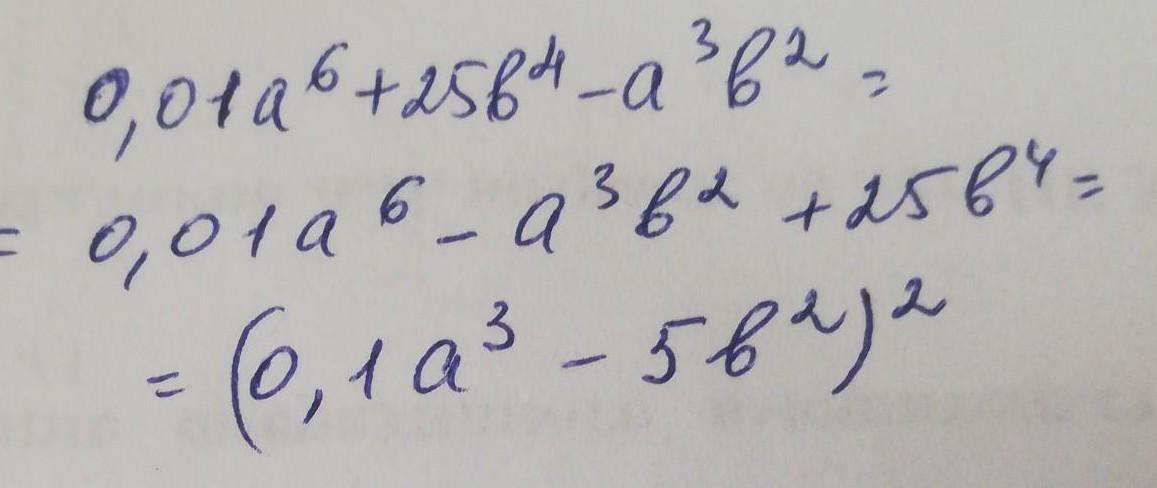 0,01a⁶+25b⁴-a³b²=
= 0,01a⁶-a³b²+25b⁴=
= (0,1a³-5b²)²